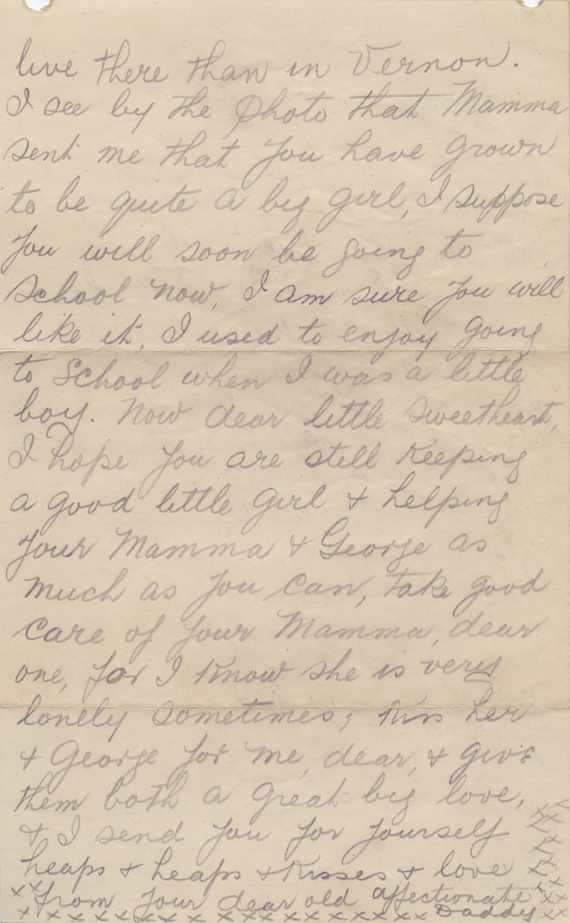 live there than in Vernon.
I see by the photo that Mamma
sent me that you have grown
to be quite a big girl, I suppose
you will soon be going to
school now, I am sure you will
like it, I used to enjoy going
to school when I was a little
boy. Now dear little sweetheart,
I hope you are still keeping
a good little girl & helping
your Mamma & George as
much as you can, take good
care of your Mamma, dear
one, for I know she is very
lonely sometimes; kiss her
& George for me, dear, & give
them both a great big love,
& I send you for yourself
heaps & heaps & kisses & love
from your dear old affectionate
Daddy